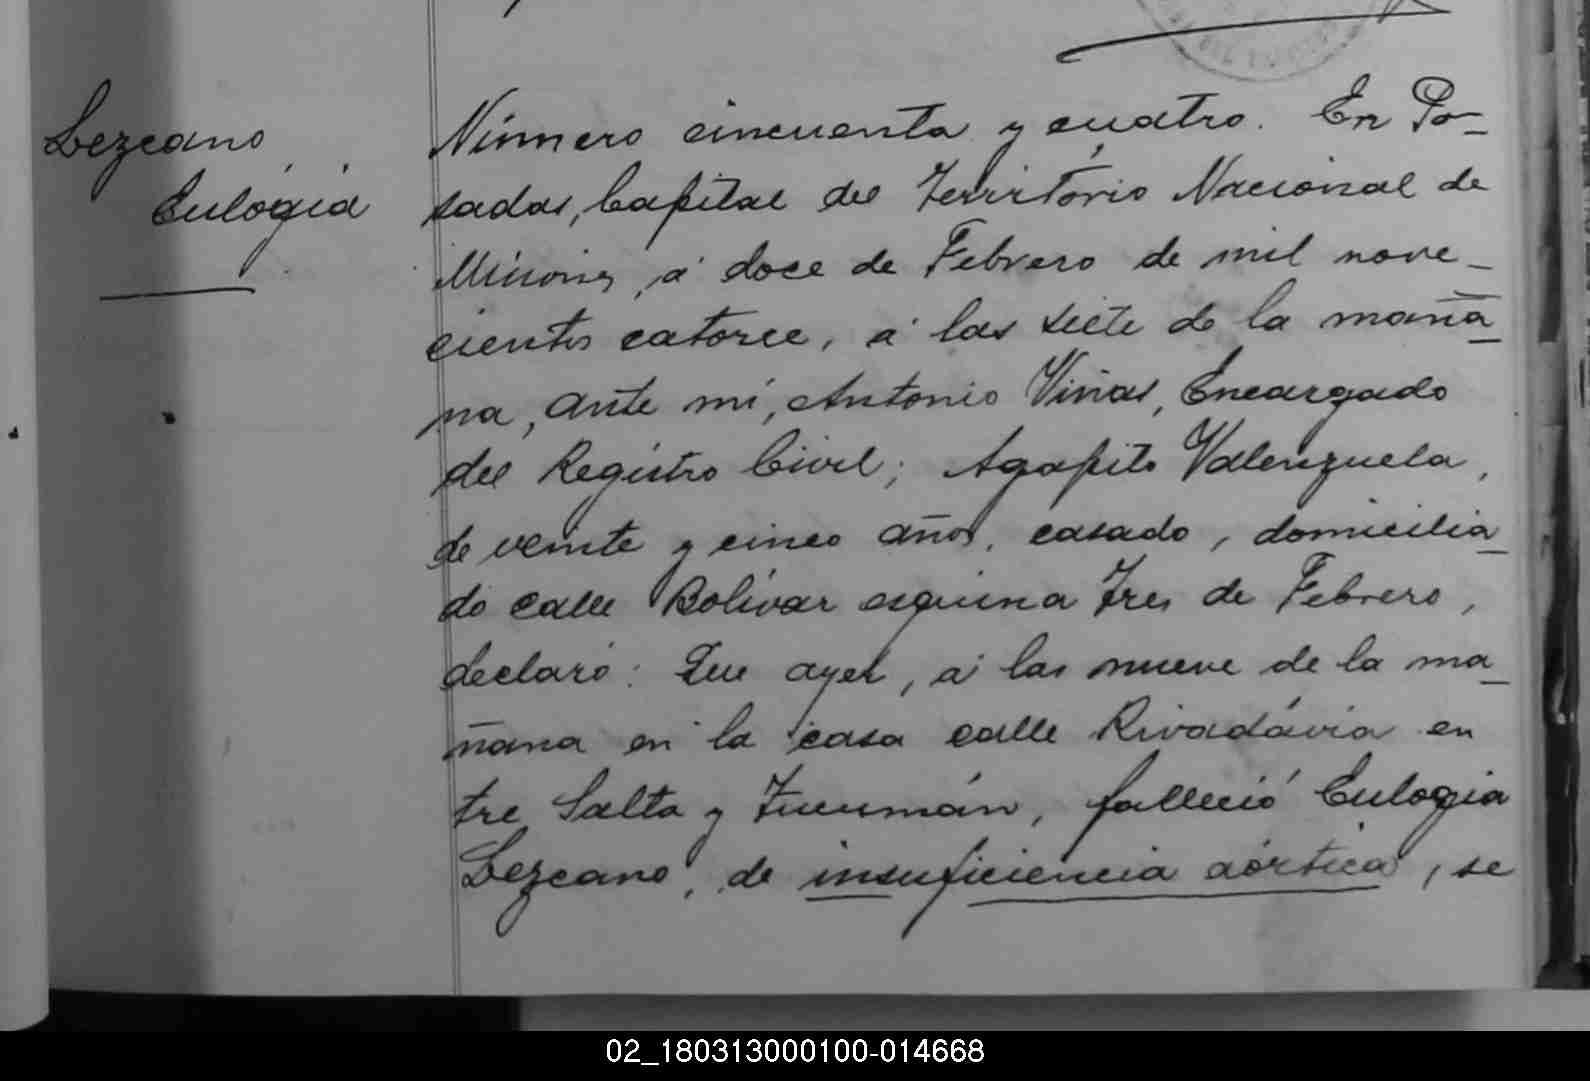 Lezcano
Eulógia
Número cincuenta y cuatro. En Po-
sadas, Capital del Território Nacional de
Misiones, á doce de Febrero de mil nove-
cientos catorce, á las siete de la maña-
na, ante mí, Antonio Viñas, Encargado
del Registro Civil; Agapito Valenzuela,
de veinte y cinco años, casado, domicilia-
do calle Bolívar esquina Tres de Febrero,
declaró: Que ayer, á las nueve de la ma-
ñana en la casa calle Rivadávia en
tre Salta y Tucumán, falleció Eulogia
Lezcano, de insuficiencia aórtica, se
02_180313000100-014668